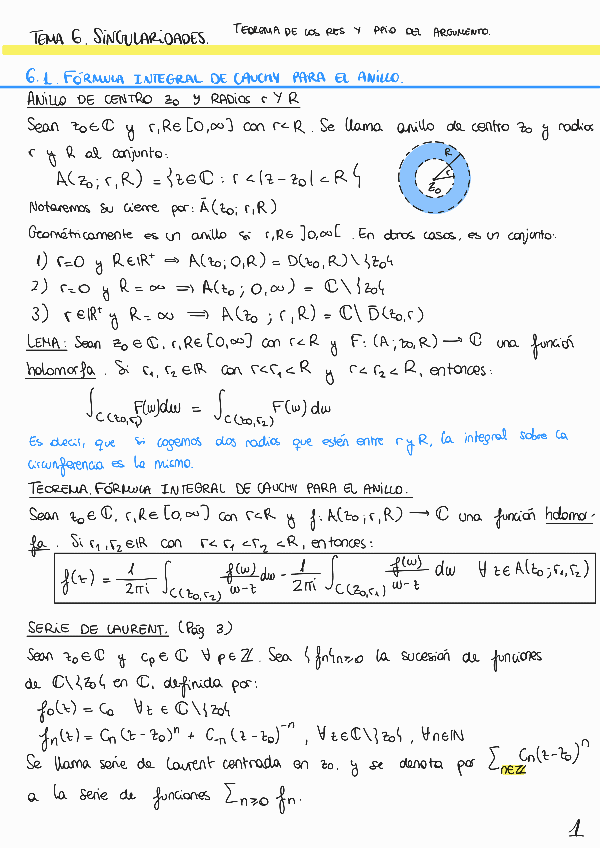 TEMA 6. SINGULARIDADES. TEOREMA DE LOS RES Y PPIO DEL ARGUMENTO.
6.1. FÓRMULA INTEGRAL DE CAUCHY PARA EL ANILLO.
ANILLO DE CENTRO z₀ Y RADIOS r Y R
Sean z₀∈ℂ y r,R∈[0,∞] con r<R. Se llama anillo de centro z₀ y radios
r y R al conjunto:
A(z₀;r,R) = {z∈ℂ : r<|z-z₀|<R}
R
r
z₀
Notaremos su cierre por: Ā(z₀;r,R)
Geométricamente es un anillo si r,R∈]0,∞[. En otros casos, es un conjunto:
1) r=0 y R∈ℝ⁺ ⇒ A(z₀;0,R) = D(z₀,R)\{z₀}
2) r=0 y R=∞ ⇒ A(z₀;0,∞) = ℂ\{z₀}
3) r∈ℝ⁺ y R=∞ ⇒ A(z₀;r,R) = ℂ\D̄(z₀,r)
LEMA: Sean z₀∈ℂ, r,R∈[0,∞] con r<R y F:(A;z₀,R)→ℂ una función
holomorfa. Si r₁,r₂∈ℝ con r<r₁<R y r<r₂<R, entonces:
∫_C(z₀,r₁) F(w)dw = ∫_C(z₀,r₂) F(w)dw
Es decir, que si cogemos dos radios que estén entre r y R, la integral sobre la
circunferencia es la misma.
TEOREMA. FÓRMULA INTEGRAL DE CAUCHY PARA EL ANILLO.
Sean z₀∈ℂ, r,R∈[0,∞] con r<R y f:A(z₀;r,R)→ℂ una función holomor-
fa. Si r₁,r₂∈ℝ con r<r₁<r₂<R, entonces:
f(z) = 1/2πi ∫_C(z₀,r₂) f(w)/w-z dw - 1/2πi ∫_C(z₀,r₁) f(w)/w-z dw ∀z∈A(z₀;r₁,r₂)
SERIE DE LAURENT. (Pág 3)
Sean z₀∈ℂ y cₚ∈ℂ ∀p∈ℤ. Sea {fn}n≥0 la sucesión de funciones
de ℂ\{z₀} en ℂ, definida por:
f₀(z) = c₀ ∀z∈ℂ\{z₀}
fₙ(z) = cₙ(z-z₀)ⁿ + c₋ₙ(z-z₀)⁻ⁿ, ∀z∈ℂ\{z₀}, ∀n∈ℕ
Se llama serie de Laurent centrada en z₀, y se denota por ∑n∈ℤ cₙ(z-z₀)ⁿ
a la serie de funciones ∑n≥0 fn.
1